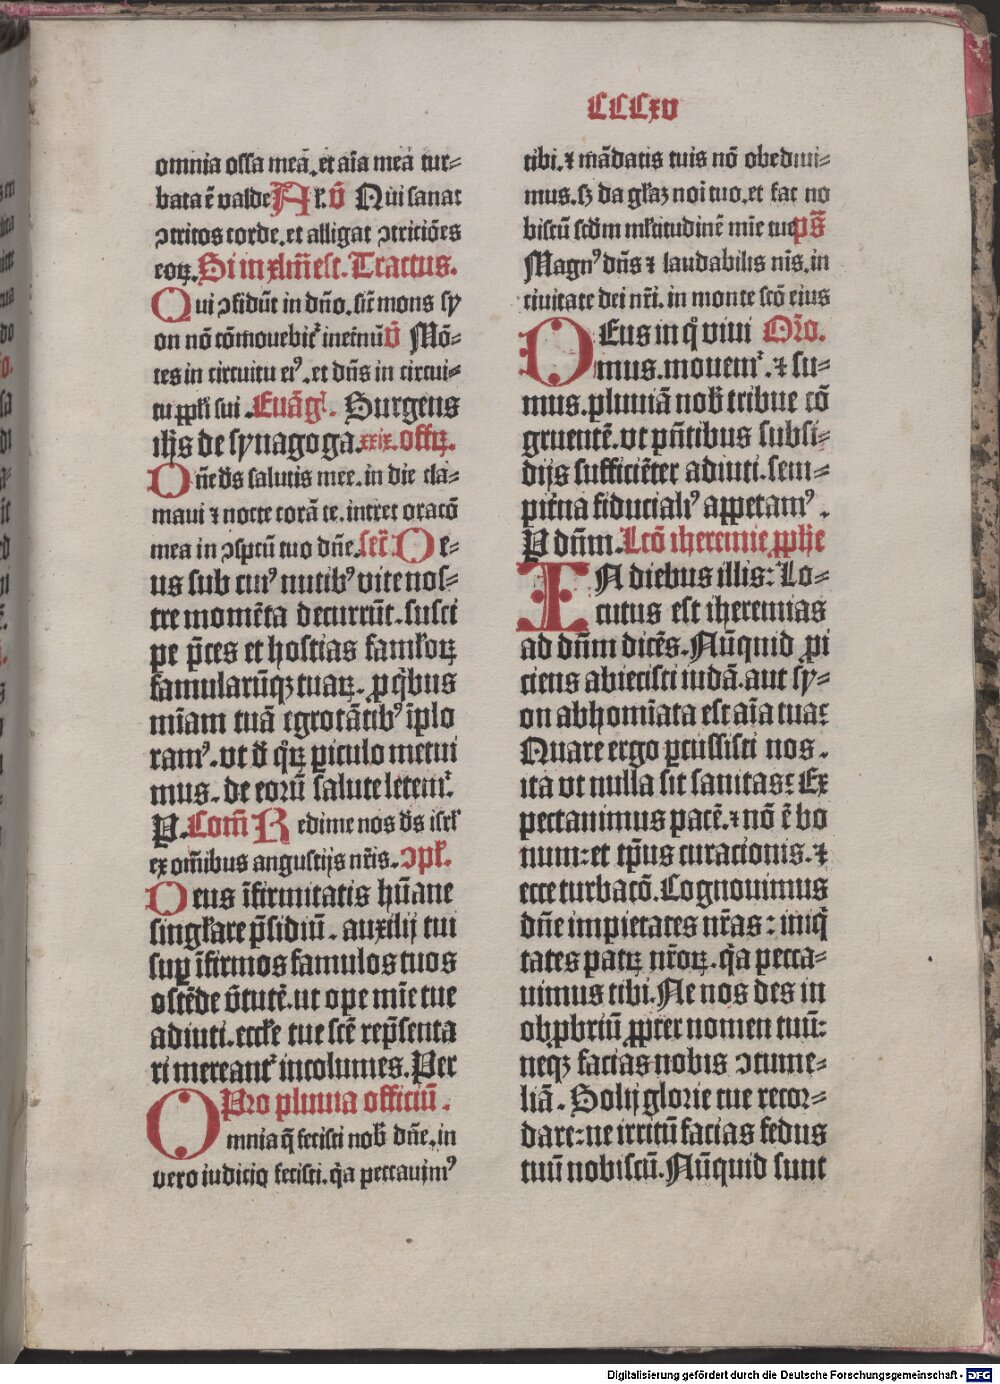 CCCxv
omnia ossa mea.et aīa mea tur⸗
bata ē valde Ał. v̄ Qui sanat
ꝯtritos corde.et alligat ꝯtritiões
eoꝝ. Si in xlm̄ est. Tractus.
Qui ꝯfidūt in dño. sic̄ mons sy
on nō cōmouebit᷑ inet̄nū v̄ Mō⸗
tes in circuitu eiꝰ.et dñs in circui⸗
tu ppłi sui . Euāgł. Surgens
ihs de synagoga. xxix. offꝝ.
Dñe ds salutis mee.in die cla⸗
maui ⁊ nocte corā te.intret oracō
mea in ꝯspcū tuo dñe. secr̄. De⸗
us sub cuiꝰ nutibꝰ vite nos⸗
tre momēta decurrūt.susci
pe p̄ces et hostias famłoꝝ
famularūqꝫ tuaꝝ. ꝓ qͥbus
mīam tuā egrotātibꝰ īplo
ramꝰ.vt d̄ qͦꝝ ꝑiculo metui
mus.de eorū salute letem᷑.
P. Com̄ Redime nos ds isrł
ex om̄ibus angustijs nr̄is. ꝯpł.
Deus īfirmitatis hūane
singłare p̄sidiū.auxilij tui
suꝑ īfirmos famulos tuos
ostēde v̄tutē.ut ope mīe tue
adiuti.eccłe tue scē rep̄senta
ri mereant᷑ incolumes.Per
Pro pluuia officiū .
Omnia q̄ fecisti nob̄ dñe.in
vero iudicio fecisti.qͥa peccauimꝰ
tibi.⁊ mādatis tuis nō obediui⸗
mus.sꝫ da głaz noī tuo.et fac no
biscū scdm młtitudinē mīe tue p̄s
Magnꝰ dñs ⁊ laudabilis nīs.in
ciuitate dei nr̄i.in monte scō eius
DEus in qͦ viui Or̄o.
mus.mouem᷑.⁊ su⸗
mus.pluuiā nob̄ tribue cō
gruentē.vt pn̄tibus subsi⸗
dijs sufficiēter adiuti.sem⸗
pit̄na fiducialiꝰ appetamꝰ.
P dnm. Lcō iheremie ꝓphe
IN diebus illis: Lo⸗
cutus est iheremias
ad dnm dicēs.Nūquid ꝓi
ciens abiecisti iudā.aut sy⸗
on abhomīata est aīa tua:
Quare ergo ꝑcussisti nos.
ita vt nulla sit sanitas: Ex
pectauimus pacē.⁊ nō ē bo
num:et tp̄us curacionis.⁊
ecce turbacō.Cognouimus
dñe impietates nr̄as: iniqͥ
tates patꝝ nr̄oꝝ.qͥa pecca⸗
uimus tibi.Ne nos des in
obꝓbriū ꝓpter nomen tuū:
neqꝫ facias nobis ꝯtume⸗
liā. Solij glorie tue recor⸗
dare:ne irritū facias fedus
tuū nobiscū.Nūquid sunt
Digitalisierung gefördert durch die Deutsche Forschungsgemeinschaft - DFG